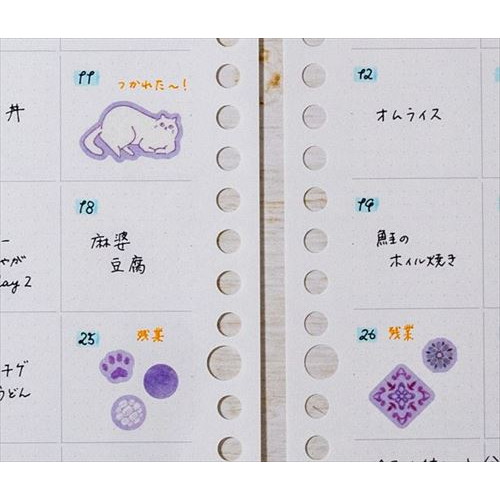 11
つかれた〜!
井
18
麻婆
豆腐
ー
やが
ay 2
25
残業
チゲ
うどん
12
オムライス
19
鮭の
ホイル焼き
26 残業